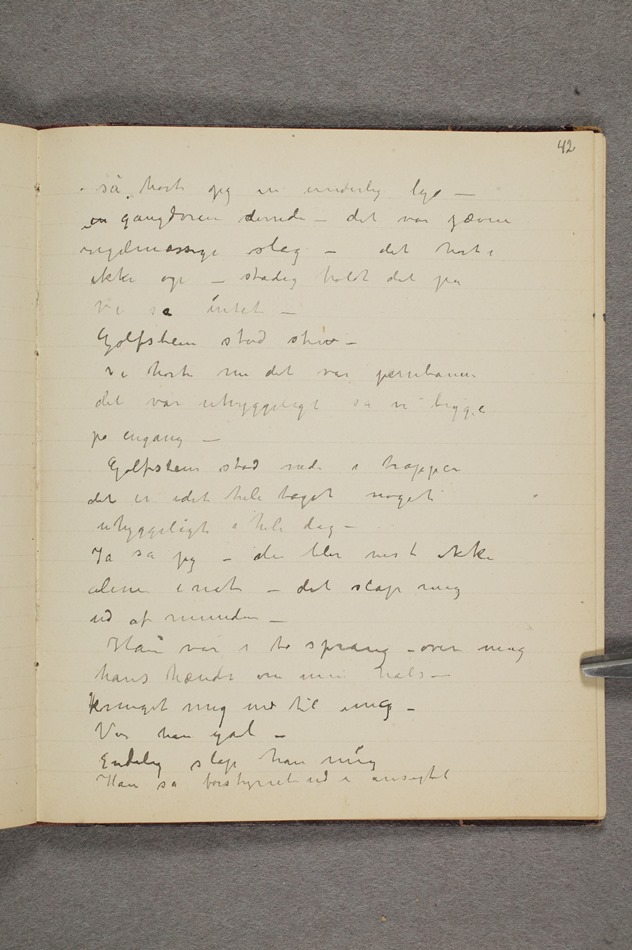 42
så hørte jeg en underlig lyd —
en gangdøren dernede — det var jævne
regelmæssige slag — det hørte
ikke op — stadig holdt det på
Vi så intet —
Golfstein stod stiv —
Vi hørte nu det var
det var uhyggeligt sa vi begge
på engang —
Golfstein stod nede i trappen
det er idet hele taget noget
uhyggeligt i hele dag —
Ja sa jeg — du blir nok ikke
alene inat — det slap mig
ud af munden —
Han var i to sprang – over mig
hans hænder om min hals —
tvunget mig ned til mig —
Var han gal —
Endelig slap han mig
Han så forstyrret ud i ansigtet